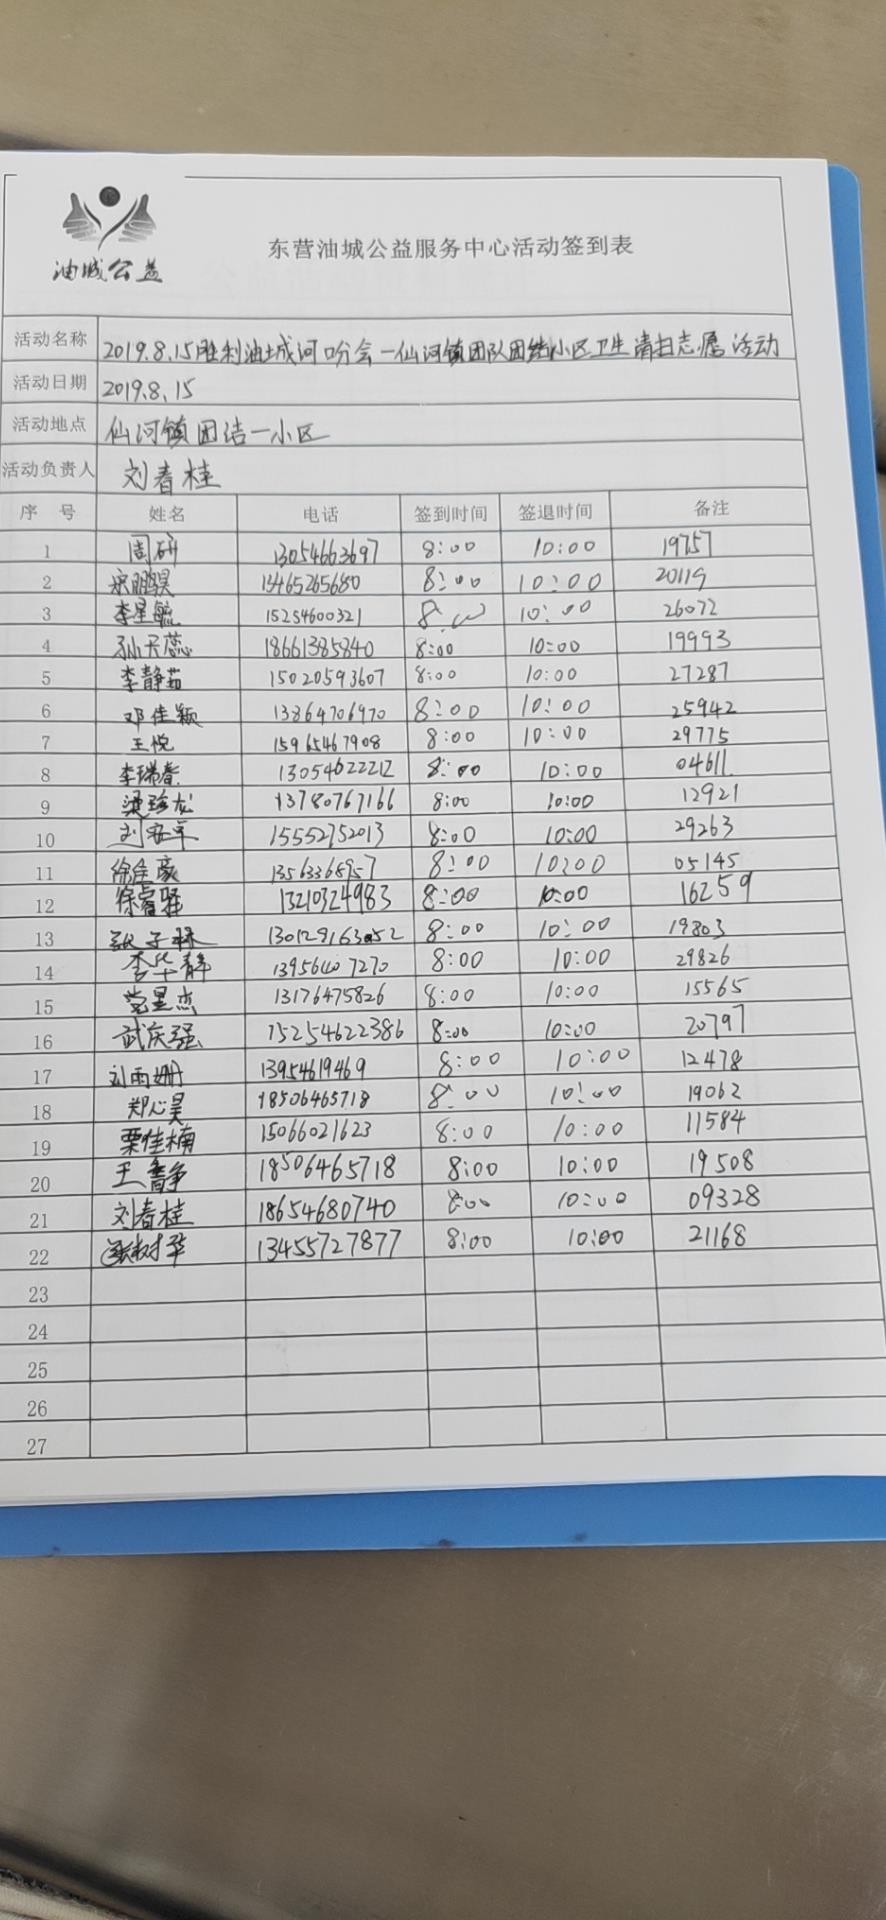 油城公益
东营油城公益服务中心活动签到表
活动名称 2019.8.15胜利油城河口分会—仙河镇团队团结小区卫生清扫志愿活动
活动日期 2019.8.15
活动地点 仙河镇团结一小区
活动负责人 刘春桂
序号 姓名 电话 签到时间 签退时间 备注
1 周研 13054663697 8:00 10:00 19757
2 宋鹏昊 13465265680 8:00 10:00 20119
3 李星毓 15254600321 8:00 10:00 26072
4 孙天蕊 18661385840 8:00 10:00 19993
5 李静茹 15020593607 8:00 10:00 27287
6 邓佳颖 13864706970 8:00 10:00 25942
7 王悦 15965467908 8:00 10:00 29775
8 李瑞春 13054622212 8:00 10:00 04611
9 梁珍龙 13780767166 8:00 10:00 12921
10 刘 军 15552752013 8:00 10:00 29263
11 徐佳豪 13563368957 8:00 10:00 05145
12 徐睿 13210324983 8:00 10:00 16259
13 张子 8:00 10:00 19803
14 李华静 13956407270 8:00 10:00 29826
15 党星杰 13176475826 8:00 10:00 15565
16 武庆强 15254622386 8:00 10:00 20797
17 刘雨姗 13954619469 8:00 10:00 12478
18 郑心昊 18506465718 8:00 10:00 19062
19 栗佳楠 15066021623 8:00 10:00 11584
20 王 静 18506465718 8:00 10:00 19508
21 刘春桂 18654680740 8:00 10:00 09328
22 树华 13455727877 8:00 10:00 21168
23
24
25
26
27